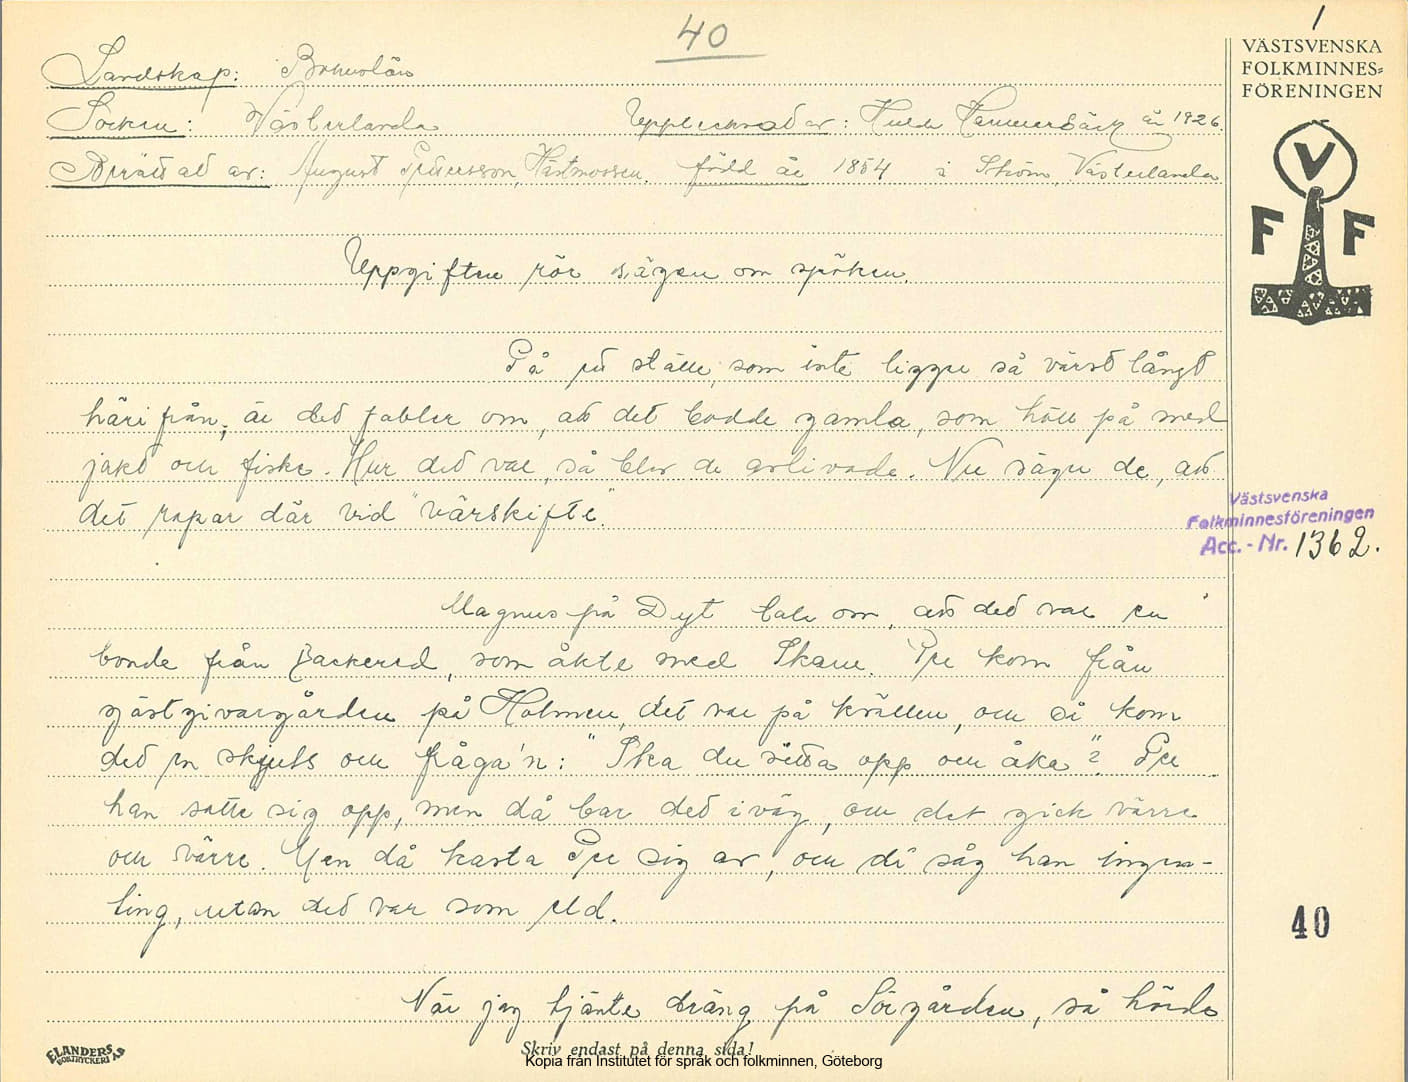 40
1
VÄSTSVENSKA
FOLKMINNES=
FÖRENINGEN
V
F F
Landskap: Bohuslän
Socken: Västerlanda Upptecknad av: Hulda Hammarbäck år 1926.
Berättad av: August Pettersson, Hästmossen. född år 1854 i Ström, Västerlanda
Uppgiften rör sägen om spöken.
På ett ställe, som inte ligger så värst långt
härifrån, är det fabler om, att det bodde gamla, som höll på med
jakt och fiske. Hur det var, så blev de avlivade. Nu säger de, att
det ropar där vid "värskifte".
Västsvenska
Folkminnesföreningen
Acc.-Nr. 1362.
Magnus på Dyt tale om, att det var en
bonde från Backered, som åkte med Skam. Per kom från
gästgivargården på Holmen, det var på kvällen, och så kom
det en skjuts och fråga'n: "Ska du sitta opp och åka"? Per
han satte sig opp, men då bar det iväg, och det gick värre
och värre. Men då kasta Per sig av, och då såg han ingen-
ting, utan det var som eld.
40
När jag tjänte dräng på Sörgården, så hörde
ELANDERS BOKTRYCKERI AB
Skriv endast på denna sida!
Kopia från Institutet för språk och folkminnen, Göteborg